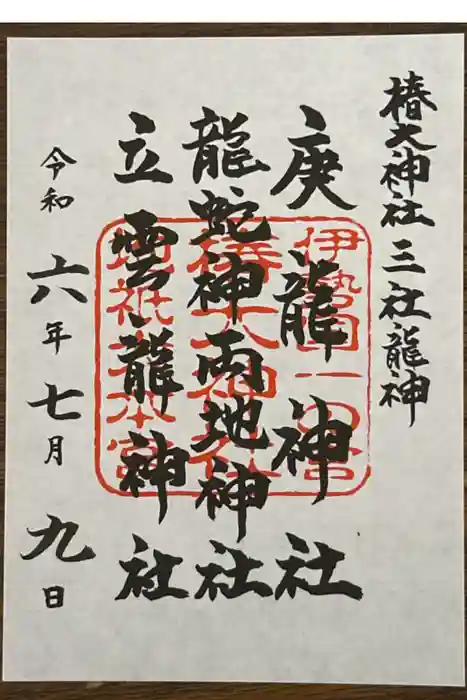 椿大神社 三社龍神
庚龍神社
龍蛇神両地神社
立雲龍神社
令和六年七月九日
伊勢国一の宮
椿大神社
地祇大本宮